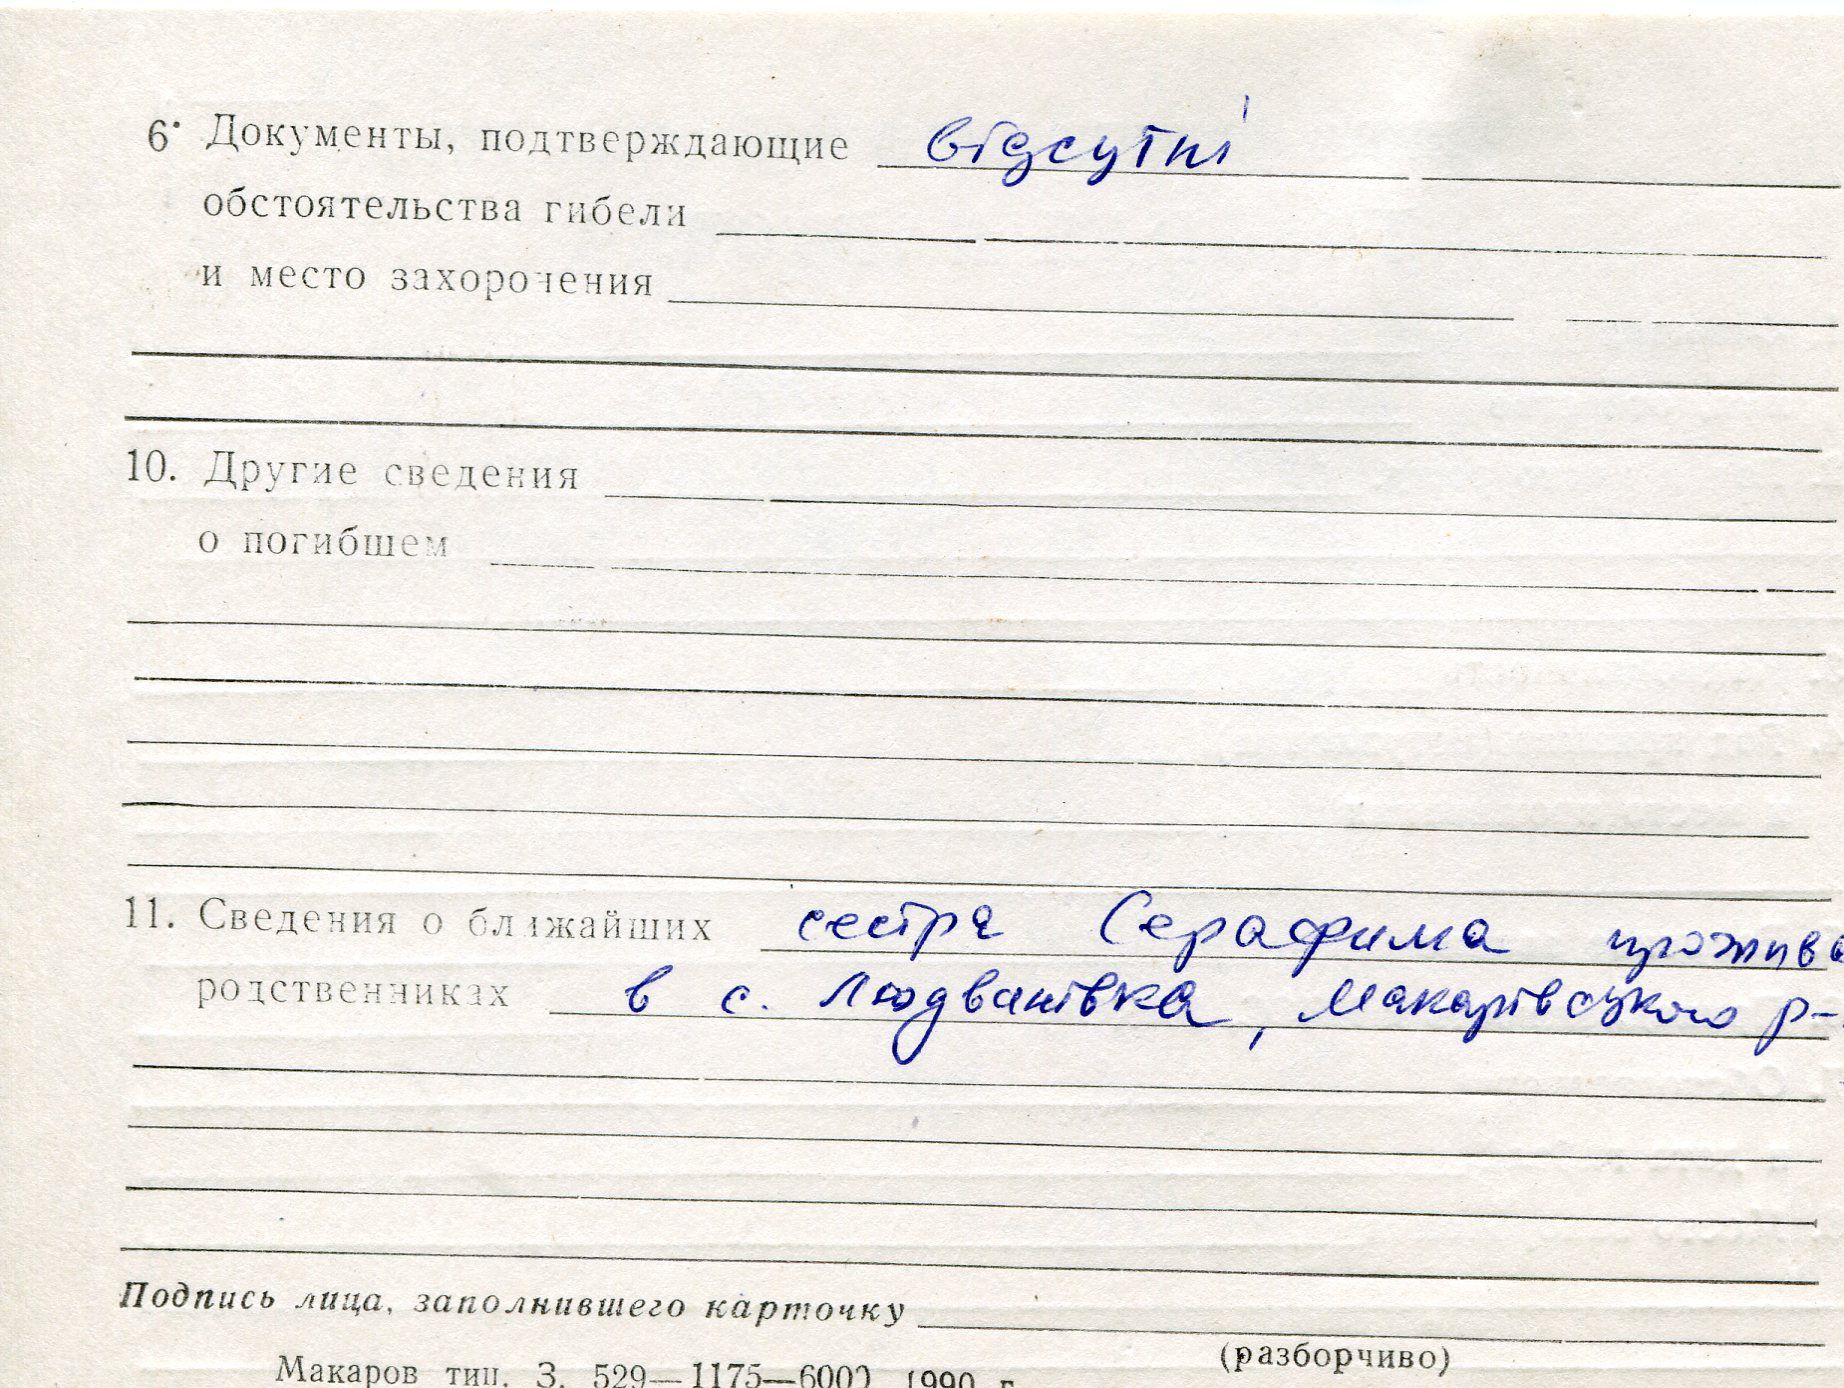 6. Документы, подтверждающие відсутні
обстоятельства гибели
и место захоронения
10. Другие сведения
о погибшем
11. Сведения о ближайших сестра Серафима прожива
родственниках в с. Людванівка, Макарівського р-
Подпись лица, заполнившего карточку
(разборчиво)
Макаров тип. З. 529—1175—6000 1990 г.